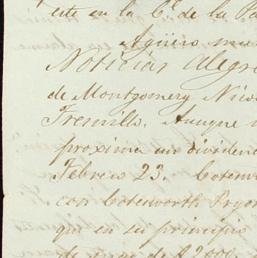 este en la C.ª de la Pa
Agüero mu
Noticias Alegre
de Montgomery Nico
Fresnillo. Aunque
proximo un dividen
Febrero 23.
con Cotesworth Pryor
que en su principio
de $2,000.